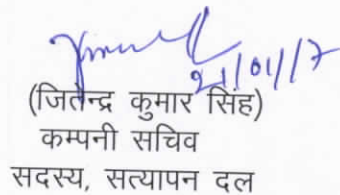 21/01/17
(जितेन्द्र कुमार सिंह)
कम्पनी सचिव
सदस्य, सत्यापन दल